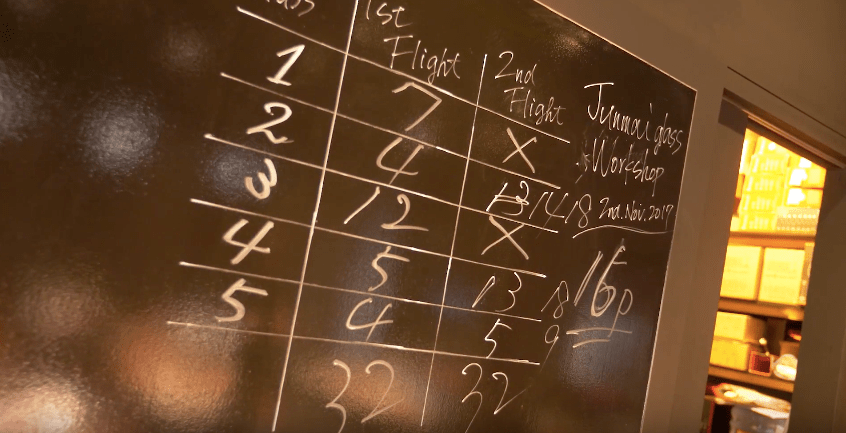 1st Flight 2nd Flight
1 7 X
2 4 13 14 18
3 12 X
4 5 13 8
5 4 5 9
32 32
Junmai glass
Workshop
2nd. Nov. 2017
16p